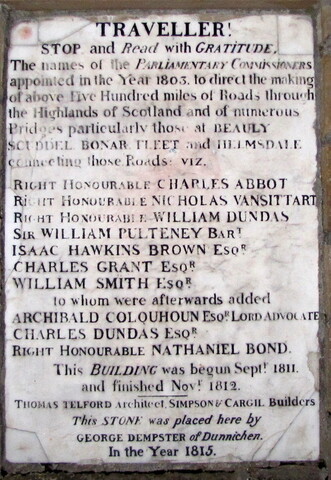 TRAVELLER!
STOP and Read with GRATITUDE,
The names of the PARLIAMENTARY COMMISSIONERS
appointed in the Year 1803. to direct the making
of above Five Hundred miles of Roads through
the Highlands of Scotland and of numerous
Bridges particularly those at BEAULY
SCUDDEL BONAR FLEET and HELMSDALE
connecting those Roads: VIZ.
RIGHT HONOURABLE CHARLES ABBOT
RIGHT HONOURABLE NICHOLAS VANSITTART
RIGHT HONOURABLE WILLIAM DUNDAS
SIR WILLIAM PULTENEY BART
ISAAC HAWKINS BROWN ESQR
CHARLES GRANT ESQR
WILLIAM SMITH ESQR
to whom were afterwards added
ARCHIBALD COLQUHOUN ESQR LORD ADVOCATE
CHARLES DUNDAS ESQR
RIGHT HONOURABLE NATHANIEL BOND.
This BUILDING was begun Sept! 1811.
and finished Nov! 1812.
THOMAS TELFORD Architect. SIMPSON & CARGIL Builders
This STONE was placed here by
GEORGE DEMPSTER of Dunnichen.
In the Year 1815.